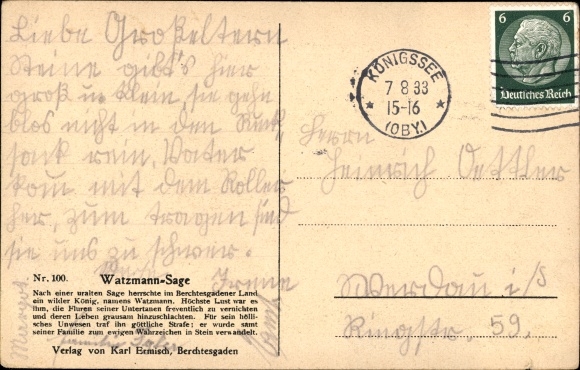 Liebe Großeltern
Steine gibt's hier
groß u. klein, sie gehn
blos nicht in den Ruck-
sack rein, Vater
kom mit dem Roller
her, zum tragen sind
sie uns zu schwer.
Irene
Margot
Familie
Nr. 100. Watzmann-Sage
Nach einer uralten Sage herrschte im Berchtesgadener Land
ein wilder König, namens Watzmann. Höchste Lust war es
ihm, die Fluren seiner Untertanen freventlich zu vernichten
und deren Leben grausam hinzuschlachten. Für sein hölli-
sches Unwesen traf ihn göttliche Strafe; er wurde samt
seiner Familie zum ewigen Wahrzeichen in Stein verwandelt.
Verlag von Karl Ermisch, Berchtesgaden
KÖNIGSSEE
7 8 33
15-16
(OBY.)
6 6
Deutsches Reich
Herrn
Heinrich Oettler
Werdau i/S
Ringstr. 59.